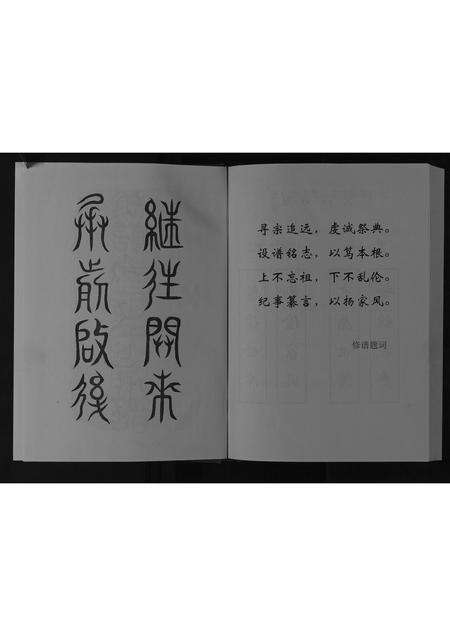 継往開来
承前啟後
寻宗追远，虔诚祭典。
设谱铭志，以笃本根。
上不忘祖，下不乱伦。
纪事纂言，以扬家风。
修谱题词